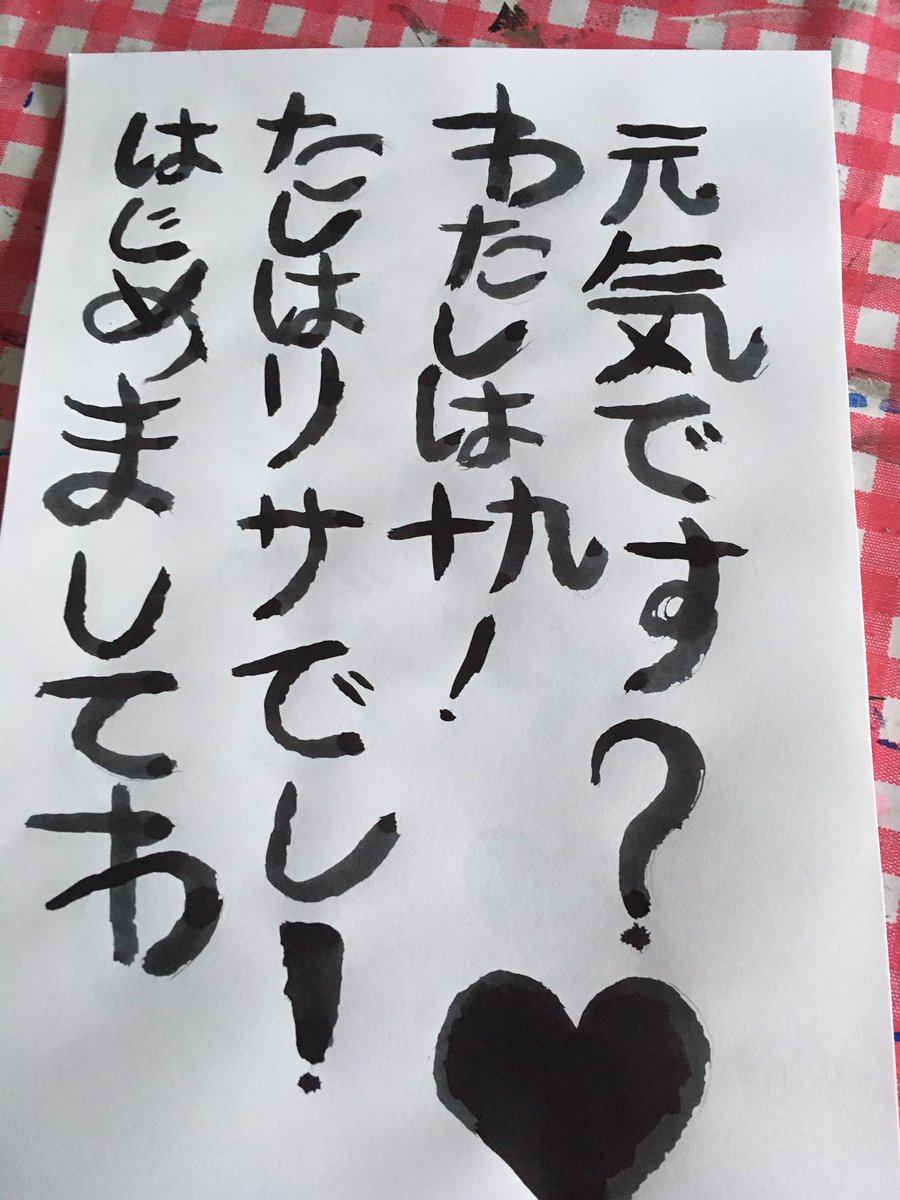 はじめましてわ
たしはリサでし!
わたしは十九!
元気です?